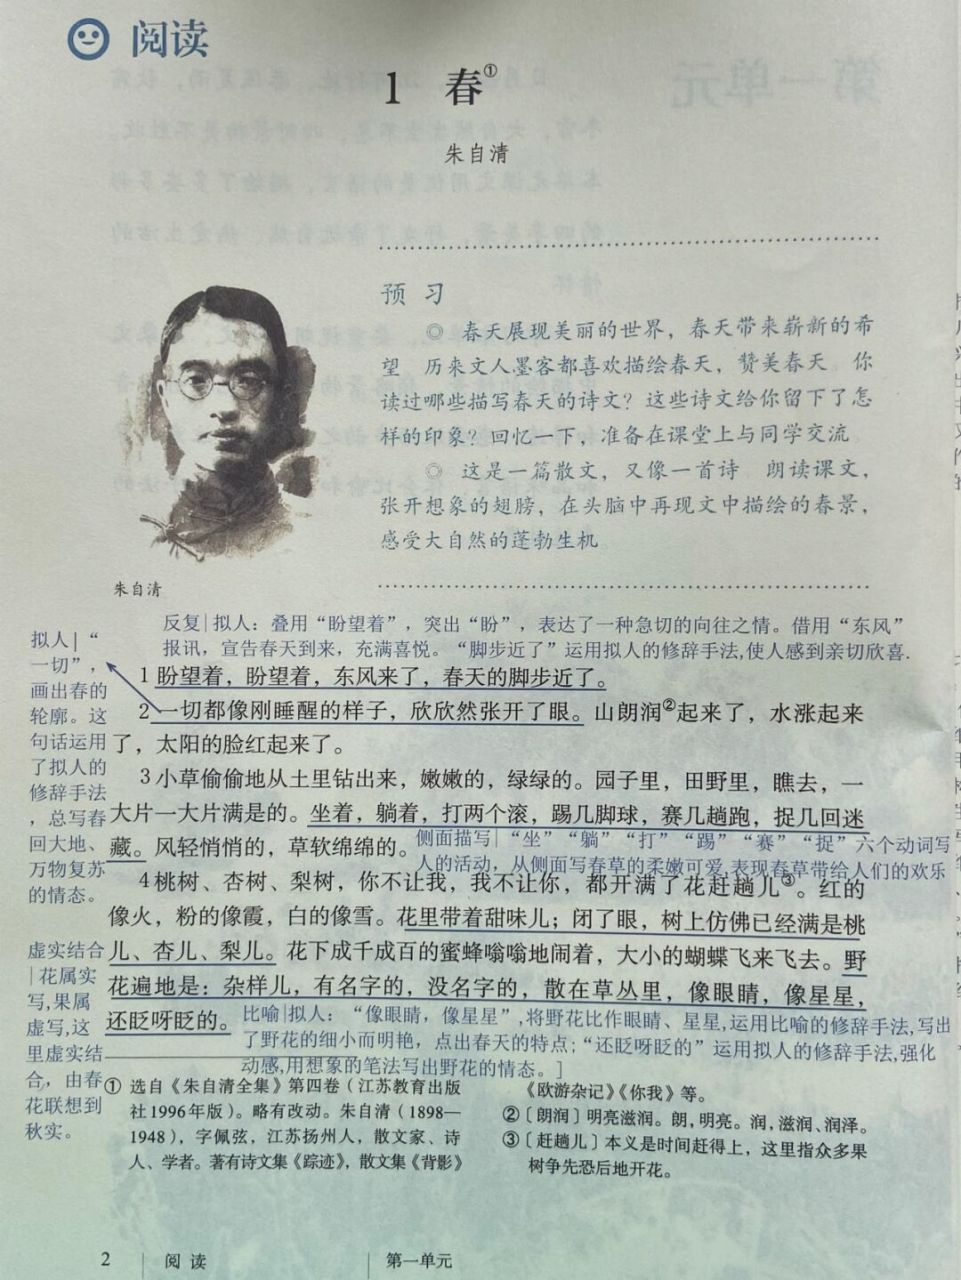 阅读
1 春①
朱自清
预习
◎ 春天展现美丽的世界，春天带来崭新的希
望 历来文人墨客都喜欢描绘春天，赞美春天 你
读过哪些描写春天的诗文？这些诗文给你留下了怎
样的印象？回忆一下，准备在课堂上与同学交流
◎ 这是一篇散文，又像一首诗 朗读课文，
张开想象的翅膀，在头脑中再现文中描绘的春景，
感受大自然的蓬勃生机
朱自清
反复|拟人：叠用“盼望着”，突出“盼”，表达了一种急切的向往之情。借用“东风”
报讯，宣告春天到来，充满喜悦。“脚步近了”运用拟人的修辞手法,使人感到亲切欣喜.
拟人|“
一切”，
画出春的
轮廓。这
句话运用
了拟人的
修辞手法
，总写春
回大地、
万物复苏
的情态。
1 盼望着，盼望着，东风来了，春天的脚步近了。
2 一切都像刚睡醒的样子，欣欣然张开了眼。山朗润②起来了，水涨起来
了，太阳的脸红起来了。
3 小草偷偷地从土里钻出来，嫩嫩的，绿绿的。园子里，田野里，瞧去，一
大片一大片满是的。坐着，躺着，打两个滚，踢几脚球，赛几趟跑，捉几回迷
藏。风轻悄悄的，草软绵绵的。
侧面描写|“坐”“躺”“打”“踢”“赛”“捉”六个动词写
人的活动，从侧面写春草的柔嫩可爱,表现春草带给人们的欢乐
4 桃树、杏树、梨树，你不让我，我不让你，都开满了花赶趟儿③。红的
像火，粉的像霞，白的像雪。花里带着甜味儿；闭了眼，树上仿佛已经满是桃
儿、杏儿、梨儿。花下成千成百的蜜蜂嗡嗡地闹着，大小的蝴蝶飞来飞去。野
花遍地是：杂样儿，有名字的，没名字的，散在草丛里，像眼睛，像星星，
还眨呀眨的。
虚实结合
|花属实
写,果属
虚写,这
里虚实结
合，由春
花联想到
秋实。
比喻|拟人：“像眼睛，像星星”,将野花比作眼睛、星星,运用比喻的修辞手法,写出
了野花的细小而明艳，点出春天的特点;“还眨呀眨的”运用拟人的修辞手法,强化
动感,用想象的笔法写出野花的情态。]
① 选自《朱自清全集》第四卷（江苏教育出版
社1996年版）。略有改动。朱自清（1898—
1948），字佩弦，江苏扬州人，散文家、诗
人、学者。著有诗文集《踪迹》，散文集《背影》
《欧游杂记》《你我》等。
②〔朗润〕明亮滋润。朗，明亮。润，滋润、润泽。
③〔赶趟儿〕本义是时间赶得上，这里指众多果
树争先恐后地开花。
2 | 阅读 | 第一单元